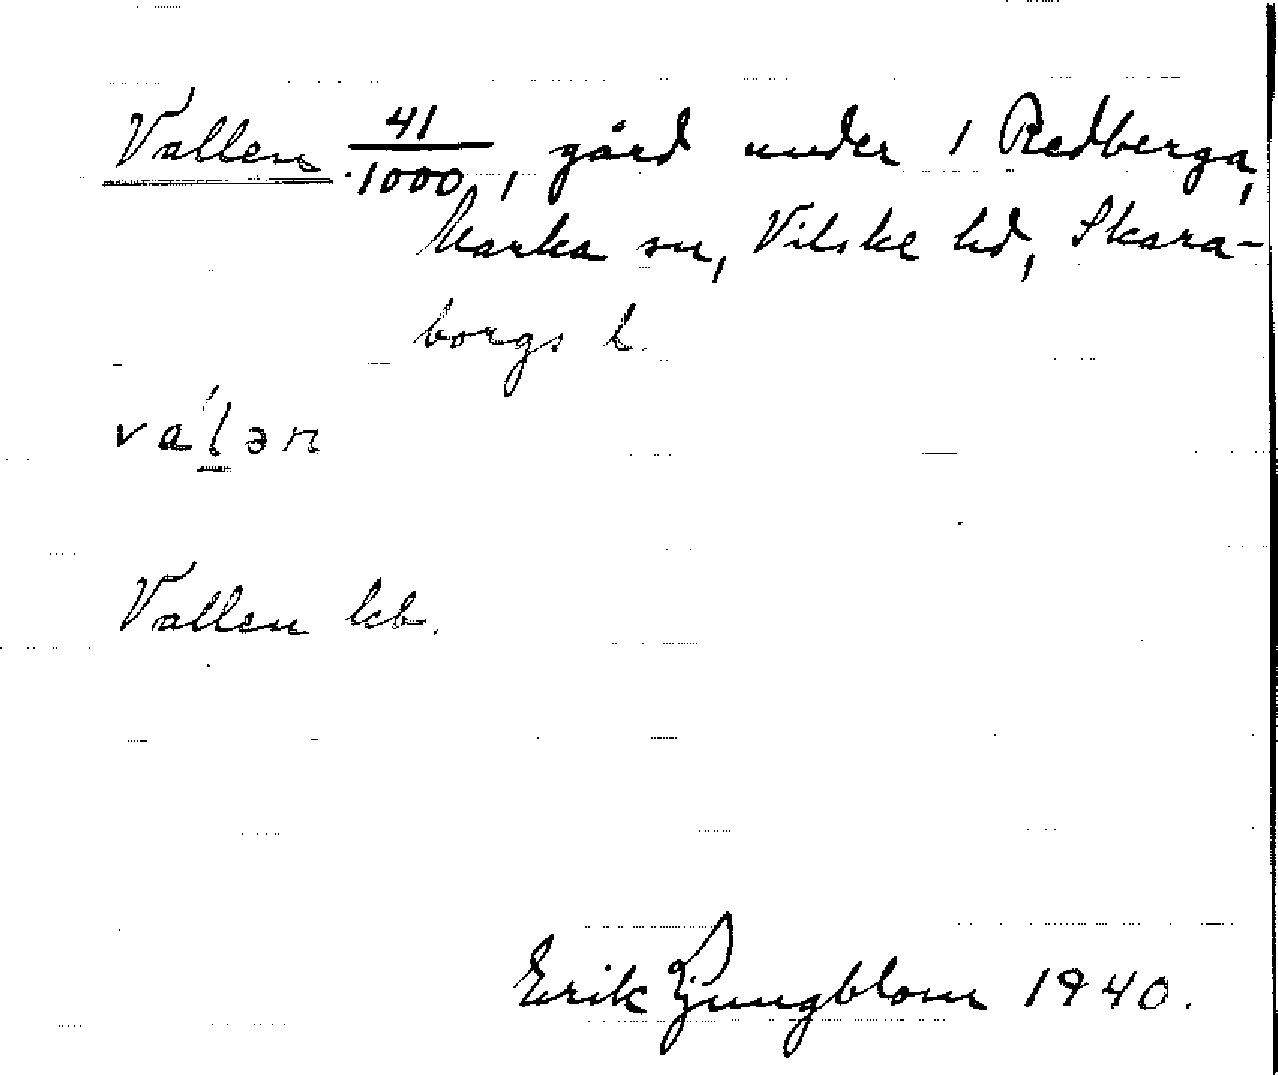 Vallen 41/1000, gård under 1 Redberga,
Marka sn, Vilske hd, Skara-
borgs l.
va´lən
Vallen kb.
Erik Ljungblom 1940.